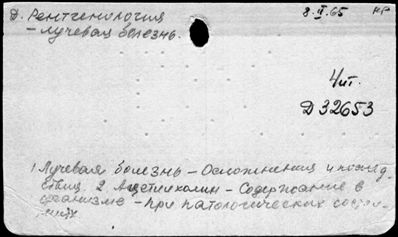 д. Рентгенология 8.II.65 НР
- лучевая болезнь.
4ит.
Д32653
1 Лучевая болезнь – Осложнения и послед
ствия 2 Ацетилхолин – Содержание в
организме – при патологических состоя
ниях